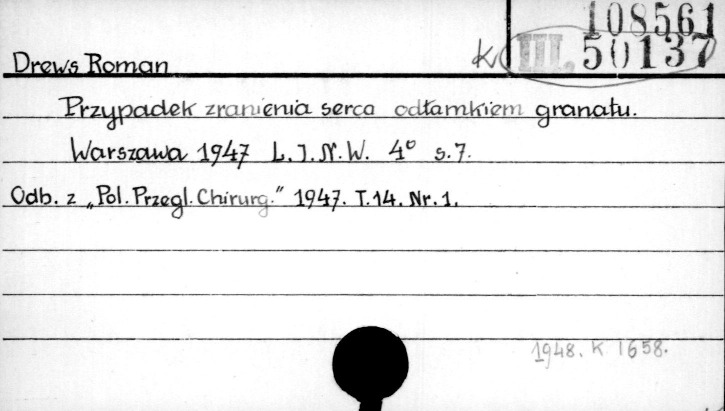 108561
Drews Roman K III. 50137
Przypadek zranienia serca odłamkiem granatu.
Warszawa 1947 L.I.N.W. 4° s.7.
Odb. z „Pol. Przegl. Chirurg." 1947. T.14. Nr.1.
1948. K 1658.